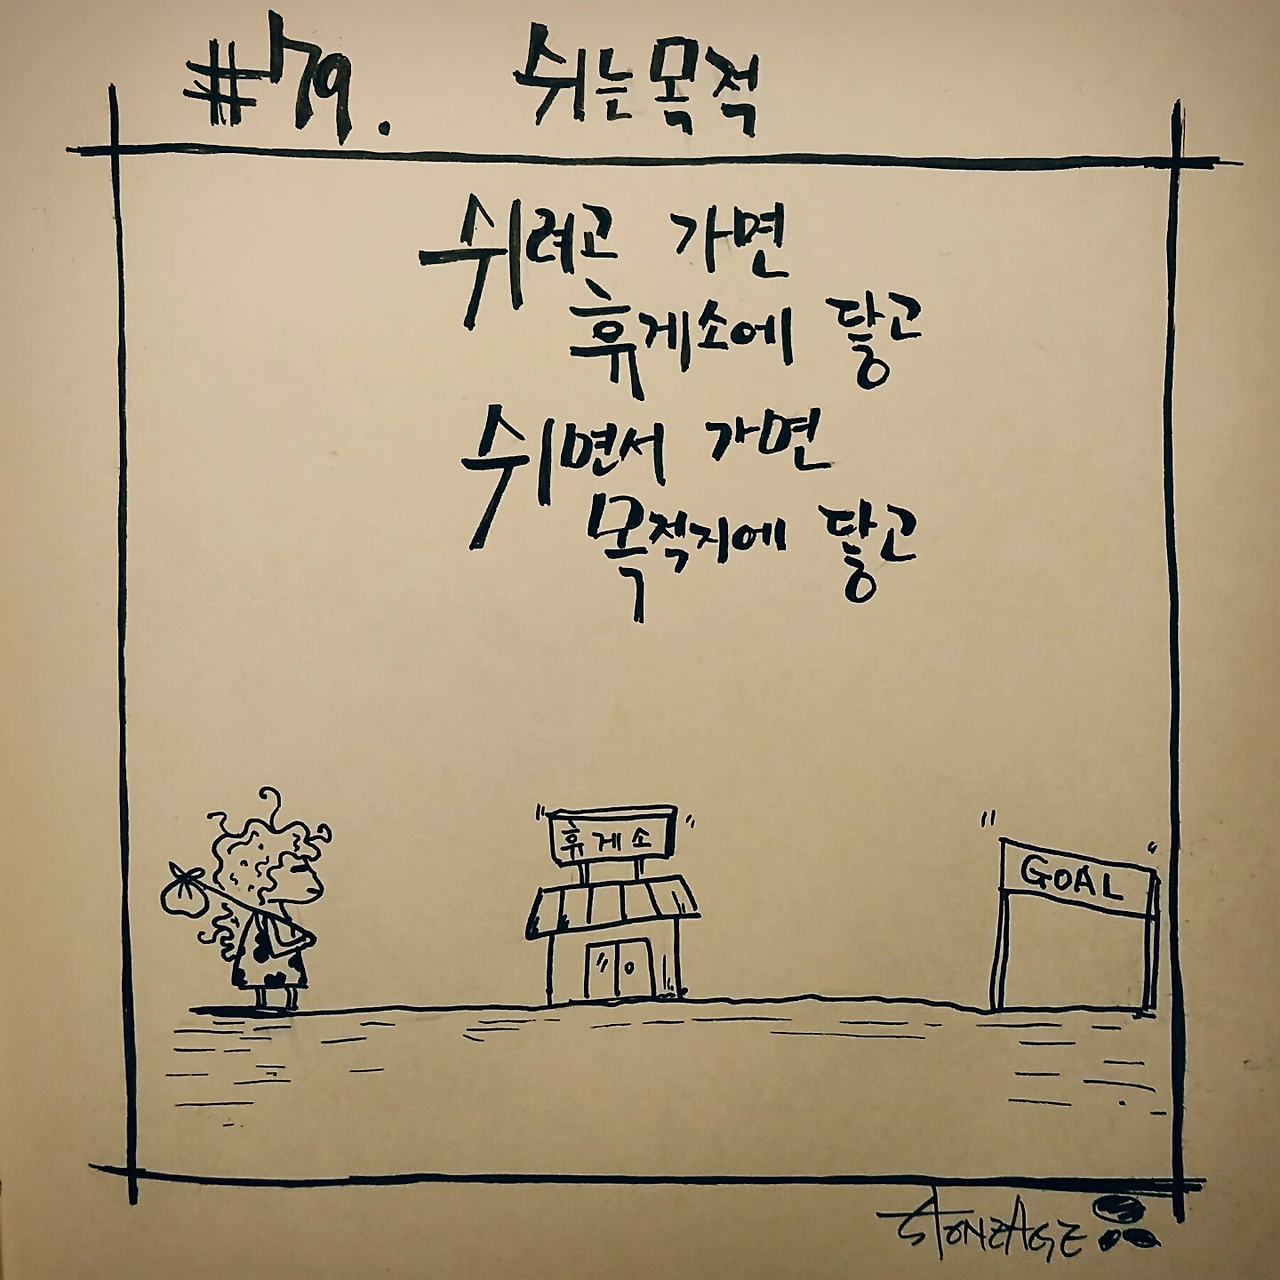 #79. 쉬는 목적
쉬려고 가면
휴게소에 닿고
쉬면서 가면
목적지에 닿고
휴게소
GOAL
STONEAGE